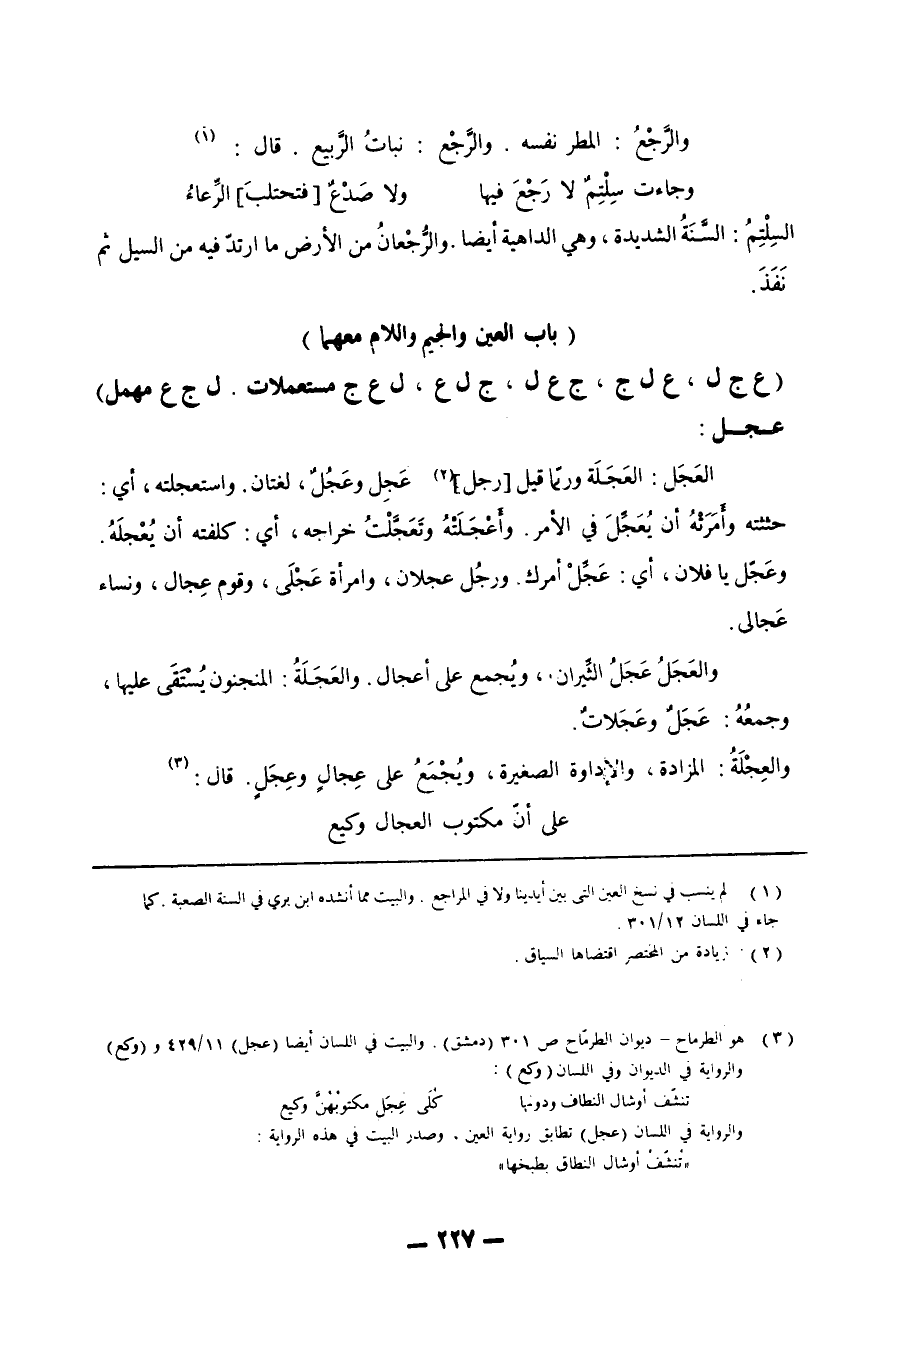 والرَّجْعُ : المطر نفسه . والرَّجْع : نباتُ الرَّبيع . قال : (١)
وجاءت سِلْتِمٌ لا رَجْعَ فيها ولا صَدْعٌ [فتحتلبَ] الرِّعاءُ
السِلْتِمُ : السَّنَةُ الشديدة ، وهي الداهية أيضا . والرُّجْعانُ من الأرض ما ارتدّ فيه من السيل ثم
نَفَذَ .
( باب العين والجيم واللام معهما )
(ع ج ل ، ع ل ج ، ج ع ل ، ج ل ع ، ل ع ج مستعملات . ل ج ع مهمل)
عـجـل :
العَجَل : العَجَلَة وربّما قيل [رجل](٢) عَجِل وعَجُلٌ ، لغتان . واستعجلته ، أي :
حثثته وأَمَرَتْهُ أن يُعَجِّلَ في الأمر . وأَعْجَلَتْهُ وتَعَجَّلْتُ خراجه ، أي : كلفته أن يُعْجِلَهُ .
وعَجّل يا فلان ، أي : عَجِّلْ أمرك . ورجُل عجلان ، وامرأة عَجْلَى ، وقوم عِجال ، ونساء
عَجالى .
والعَجَلُ عَجَلُ الثِّيران ، ويُجمع على أعجال . والعَجَلَةُ : المنجنون يُسْتَقَى عليها ،
وجمعُهُ : عَجَلٌ وعَجَلاتٌ .
والعِجْلَةُ : المزادة ، والإداوة الصغيرة ، ويُجْمَعُ على عِجالٍ وعِجَلٍ . قال : (٣)
على أنّ مكتوب العجال وكيع
(١) لم ينسب في نسخ العين التي بين أيدينا ولا في المراجع . والبيت مما أنشده ابن بري في السنة الصعبة . كما
جاء في اللسان ٣٠١/١٢ .
(٢) زيادة من المختصر اقتضاها السياق .
(٣) هو الطرماح – ديوان الطرمّاح ص ٣٠١ (دمشق) . والبيت في اللسان أيضا (عجل) ٤٢٩/١١ و (وكع)
والرواية في الديوان وفي اللسان (وكع) :
تنشّف أوشال النطاف ودونها كُلَى عِجَلٍ مكتوبُهْنَّ وكيع
والرواية في اللسان (عجل) تطابق رواية العين . وصدر البيت في هذه الرواية :
«تُنشّفْ أوشال النطاق بطبخها»
— ٢٢٧ —